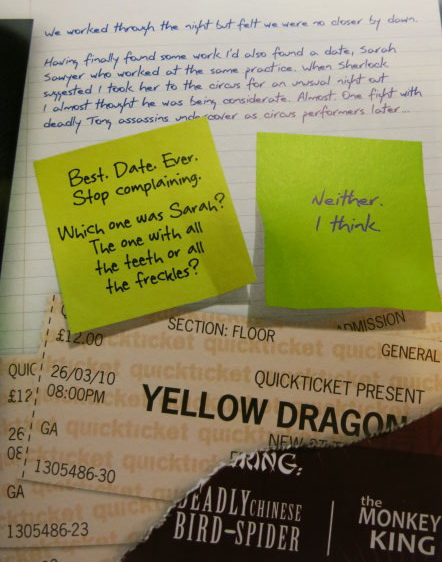 We worked through the night but felt we were no closer by dawn.
Having finally found some work I'd also found a date, Sarah
Sawyer who worked at the same practice. When Sherlock
suggested I took her to the circus for an unusual night out
I almost thought he was being considerate. Almost. One fight with
deadly Tong assassins undercover as circus performers later...
Best. Date. Ever.
Stop complaining.
Which one was Sarah?
The one with all
the teeth or all
the freckles?
Neither.
I think.
£12.00
SECTION: FLOOR
ADMISSION
GENERAL
quickticket
26/03/10
08:00PM
QUICKTICKET PRESENT
YELLOW DRAGON
GA
1305486-30
QUIC
£12
26
08
GA
1305486-23
RING:
DEADLY CHINESE
BIRD-SPIDER
the
MONKEY
KING